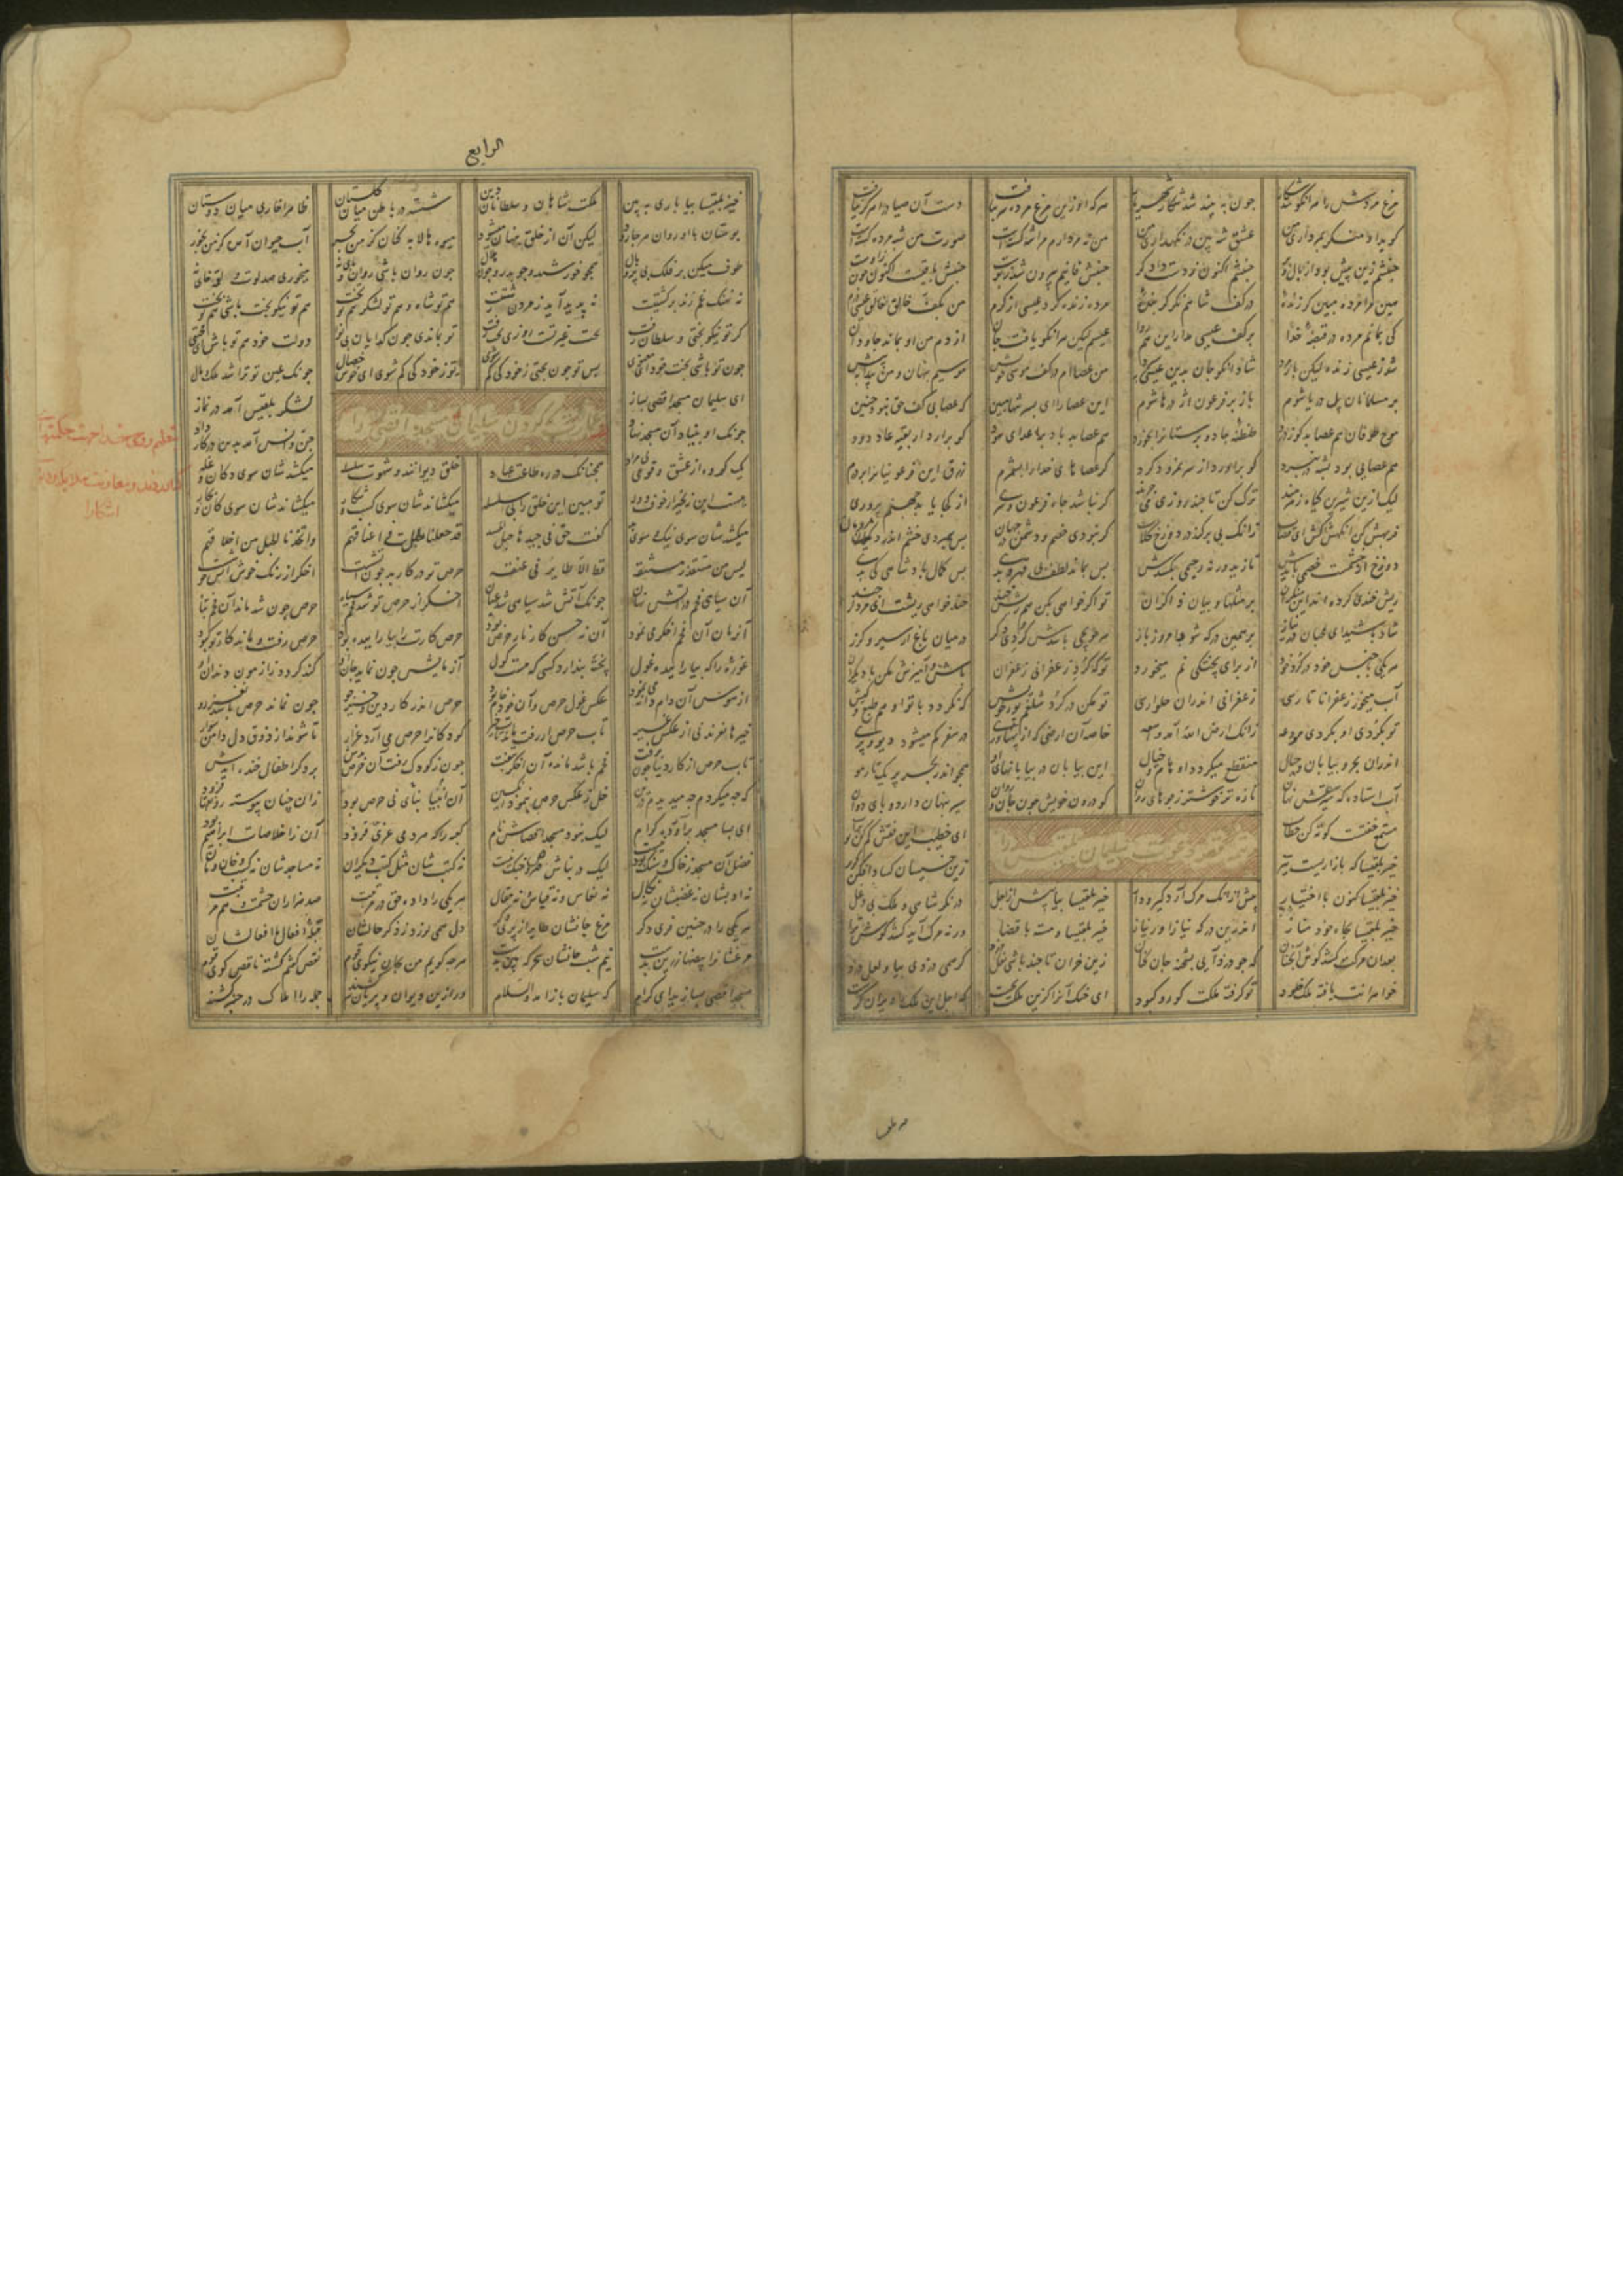 الرابع
مرغ مردش را هر آنکو شد شکار چون به بیند شد شکار شهریار هر که او زین مرغ مرده سر بتافت دست آن صیاد را هرگز نیافت
کوید او منکر بمرداری من عشق شه بین در نگهداری من من نه مردارم مرا شه کشته است صورت من شبه مرده کشته است
جنبشم زین پیش بود از بال و پر جنبشم اکنون ز دست دادگر جنبش فانیم بیرون شد ز پوست جنبشم باقیست اکنون چون ازوست
هین مرا مرده مبین گر زنده در کف شاهم نگر گر بنده مرده زنده کرد عیسی از کرم من بکف خالق عیسی درم
کی بمانم مرده در قبضه خدا بر کف عیسی مدار این هم روا عیسیم لیکن هر آنکو یافت جان از دم من او بماند جاودان
شد ز عیسی زنده لیکن باز مرد شاد آنکو جان بدین عیسی سپرد من عصاام در کف موسی خویش موسیم پنهان و من پیدا به پیش
بر مسلمانان پل دریا شوم باز بر فرعون اژدرها شوم این عصا را ای پسر تنها مبین که عصا بی کف حق نبود چنین
موج طوفان هم عصا بد کو ز درد طنطنه جادو پرستانرا بخورد هم عصا بد باد بر اعدای هود کو برآرد از بقیه عاد دود
هم عصایی بود پشه در نبرد کو برآورد از سر نمرود گرد گر عصاهای خدا را بشمرم زرق این فرعونیانرا بردرم
لیک زین شیرین کیاه زهرمند ترک کن تا چند روزی می‌چرند گر نباشد جاه فرعون و سری از کجا یابد جهنم پروری
فربهش کن آنگهش کش ای قصاب زانک بی برگند در دوزخ کلاب گر نبودی خصم و دشمن در جهان پس بمردی خشم اندر مردمان
دوزخ آن خشمست خصمی بایدش تا زید ور نه رحیمی بکشدش پس بماند لطف بی قهر و بدی پس کمال پادشاهی کی بدی
ریش خندی کرده‌اند این منکران بر مثلها و بیان ذاکران تو اگر خواهی بکن هم ریش خند چند خواهی زیست ای مردار چند
شاد باشید ای محبان در نیاز بر همین در که شود امروز باز هر حویجی باشدش کردی دگر در میان باغ از سیر و کبر
هر یکی با جنس خود در کرد خود از برای پختگی نم میخورد تو که کرد زعفرانی زعفران باش و آمیزش مکن با دیگران
آب میخور زعفرانا تا رسی زعفرانی اندر آن حلوا رسی تو مکن در کرد شلغم پوز خویش که نکردد با تو او هم طبع و کیش
تو بکردی او بکردی مودعه زانک ارض الله آمد واسعه خاصه آن ارضی که از پهناوری در سفر کم میشود دیو و پری
اندر آن بحر و بیابان و جبال منقطع میکردد اوهام و خیال این بیابان در بیابانهای او همچو اندر بحر پر یک تار مو
آب استاده که سیرستش نهان تازه تر خوشتر ز جوهای روان کو درون خویش چون جان و روان سیر پنهان دارد و پای روان
مستمع خفتست کوته کن خطاب ای خطیب این نقش کم کن تو بر آب
خیز بلقیسا که بازاریست تیز زین خسیسان کساد افکن گریز
خیز بلقیسا کنون با اختیار پیش از آنک مرک آرد گیر و دار خیز بلقیسا بیا پیش از اجل در نگر شاهی و ملک بی دغل
خیز بلقیسا بجاه خود مناز اندرین درگه نیاز آور نه ناز خیز بلقیسا و مستیز با قضا ورنه مرک آید کشد گوش ترا
بعد از آن گوشت کشد مرگ آنچنان که چو دزد آیی بشحنه جان کنان زین خران تا چند باشی نعل دزد گر همی دزدی بیا و لعل دزد
خواهرانت یافته ملک خلود تو گرفته ملکت کور و کبود ای خنک آنرا کزین ملکت بجست که اجل این ملک را ویران گرست
خیز بلقیسا بیا باری ببین ملکت شاهان و سلطانان دین شسته در باطن میان گلستان ظاهرا حادی میان دوستان
بوستان با او روان هر جا رود لیکن آن از خلق پنهان میشود میوه‌ها لابه کنان کز من بچر آب حیوان آمده کز من بخور
طوف میکن بر فلک بی پر و بال همچو خورشید و چو بدر و چون هلال چون روان باشی روان و پای نه میخوری صد لوت و لقمه خای نه
نه نهنگ غم زند بر کشتیت نه پدید آید ز مردن زشتیت هم تو شاه و هم تو لشکر هم تو تخت هم تو نیکوبخت باشی هم تو بخت
گر تو نیکو بختی و سلطان زفت بخت غیر تست روزی بخت رفت تو بماندی چون گدایان بی نوا دولت خود هم تو باش ای مجتبی
چون تو باشی بخت خود ای معنوی پس تو چون بختی ز خود کی گم شوی تو ز خود کی گم شوی ای خوش خصال چونک عین تو ترا شد ملک و مال
بقیه عمارت کردن سلیمان مسجد اقصی را
ای سلیمان مسجد اقصی بساز لشکر بلقیس آمد در نماز
چونک او بنیاد آن مسجد نهاد جن و انس آمد بدن در کار داد
یک گروه از عشق و قومی بی مراد همچنانک در ره طاعت عباد خلق دیوانند و شهوت سلسله میکشد شان سوی دکان و غله
هست این زنجیر از خوف و وله تو مبین این خلق را بی سلسله میکشاند شان سوی کسب و شکار میکشاند شان سوی کان و بحار
میکشد شان سوی نیک و سوی بد گفت حق فی جیدها حبل المسد قد جعلنا الحبل فی اعناقهم واتخذنا الحبل من اخلاقهم
لیس من مستقذر مستنقه قط الا طایره فی عنقه حرص تو در کار بد چون آتشست اخگر از رنگ خوش آتش خوشست
آن سیاهی فحم در آتش نهان چونک آتش شد سیاهی شد عیان اخگر از حرص تو شد فحم سیاه حرص چون شد ماند آن فحم تباه
آنزمان آن فحم اخگر می‌نمود آن نه حسن کار نار حرص بود حرص کارت را بیاراییده بود حرص رفت و ماند کار تو کبود
غوزه را که بیارایید غول پخته پندارد کسی که هست گول آزمایش چون نماید جان او کند گردد ز آزمون دندان او
از هوس آن دام دانه مینمود عکس غول حرص و آن خود خام بود حرص اندر کار دین و خیر جو چون نماند حرص باشد نغز رو
خیرها نغزند نی از عکس غیر تاب حرص ار رفت ماند تاب خیر کودکان را حرص می‌آرد غرار تا شوند از ذوق دل دامن سوار
تاب حرص از کار دنیا چون برفت فحم باشد مانده از آن اخگر بتفت چون ز کودک رفت آن حرص بدش بر دگر اطفال خنده آیدش
که چه میکردم چه میدیدم درین خل ز عکس حرص بنمود انگبین آن بنای انبیا بی حرص بود زان چنان پیوسته رونقها فزود
ای بسا مسجد برآورده کرام لیک نبود مسجد اقصاش نام کعبه را که هر دمی عزی فزود آن ز اخلاصات ابراهیم بود
فضل آن مسجد ز خاک و سنگ نیست لیک در بناش حرص و جنگ نیست نه کتبشان مثل کتب دیگران نه مساجدشان نه کسب و خان و مان
نه ادبشان نه غضبشان نه نکال نه نعاس و نه قیاس و نه مقال هر یکی را داده حق در مرتبت صد هزاران حشمت و هم مرتبت
هر یکی را در حنین فری دگر مرغ جانشان طایر از پری دگر دل همی لرزد ز ذکر حالشان قبله افعال ما افعالشان
مرغشانرا بیضها زرین بدست نیم شب جانشان سحرگه بین شدست هر چه گویم من بجان نیکوی قوم نقص گفتم گشته ناقص گوی قوم
مسجد اقصی بسازید ای کرام که سلیمان باز آمد والسلام ور ازین دیوان و پریان سر کشند جمله را املاک در چنبر کشند